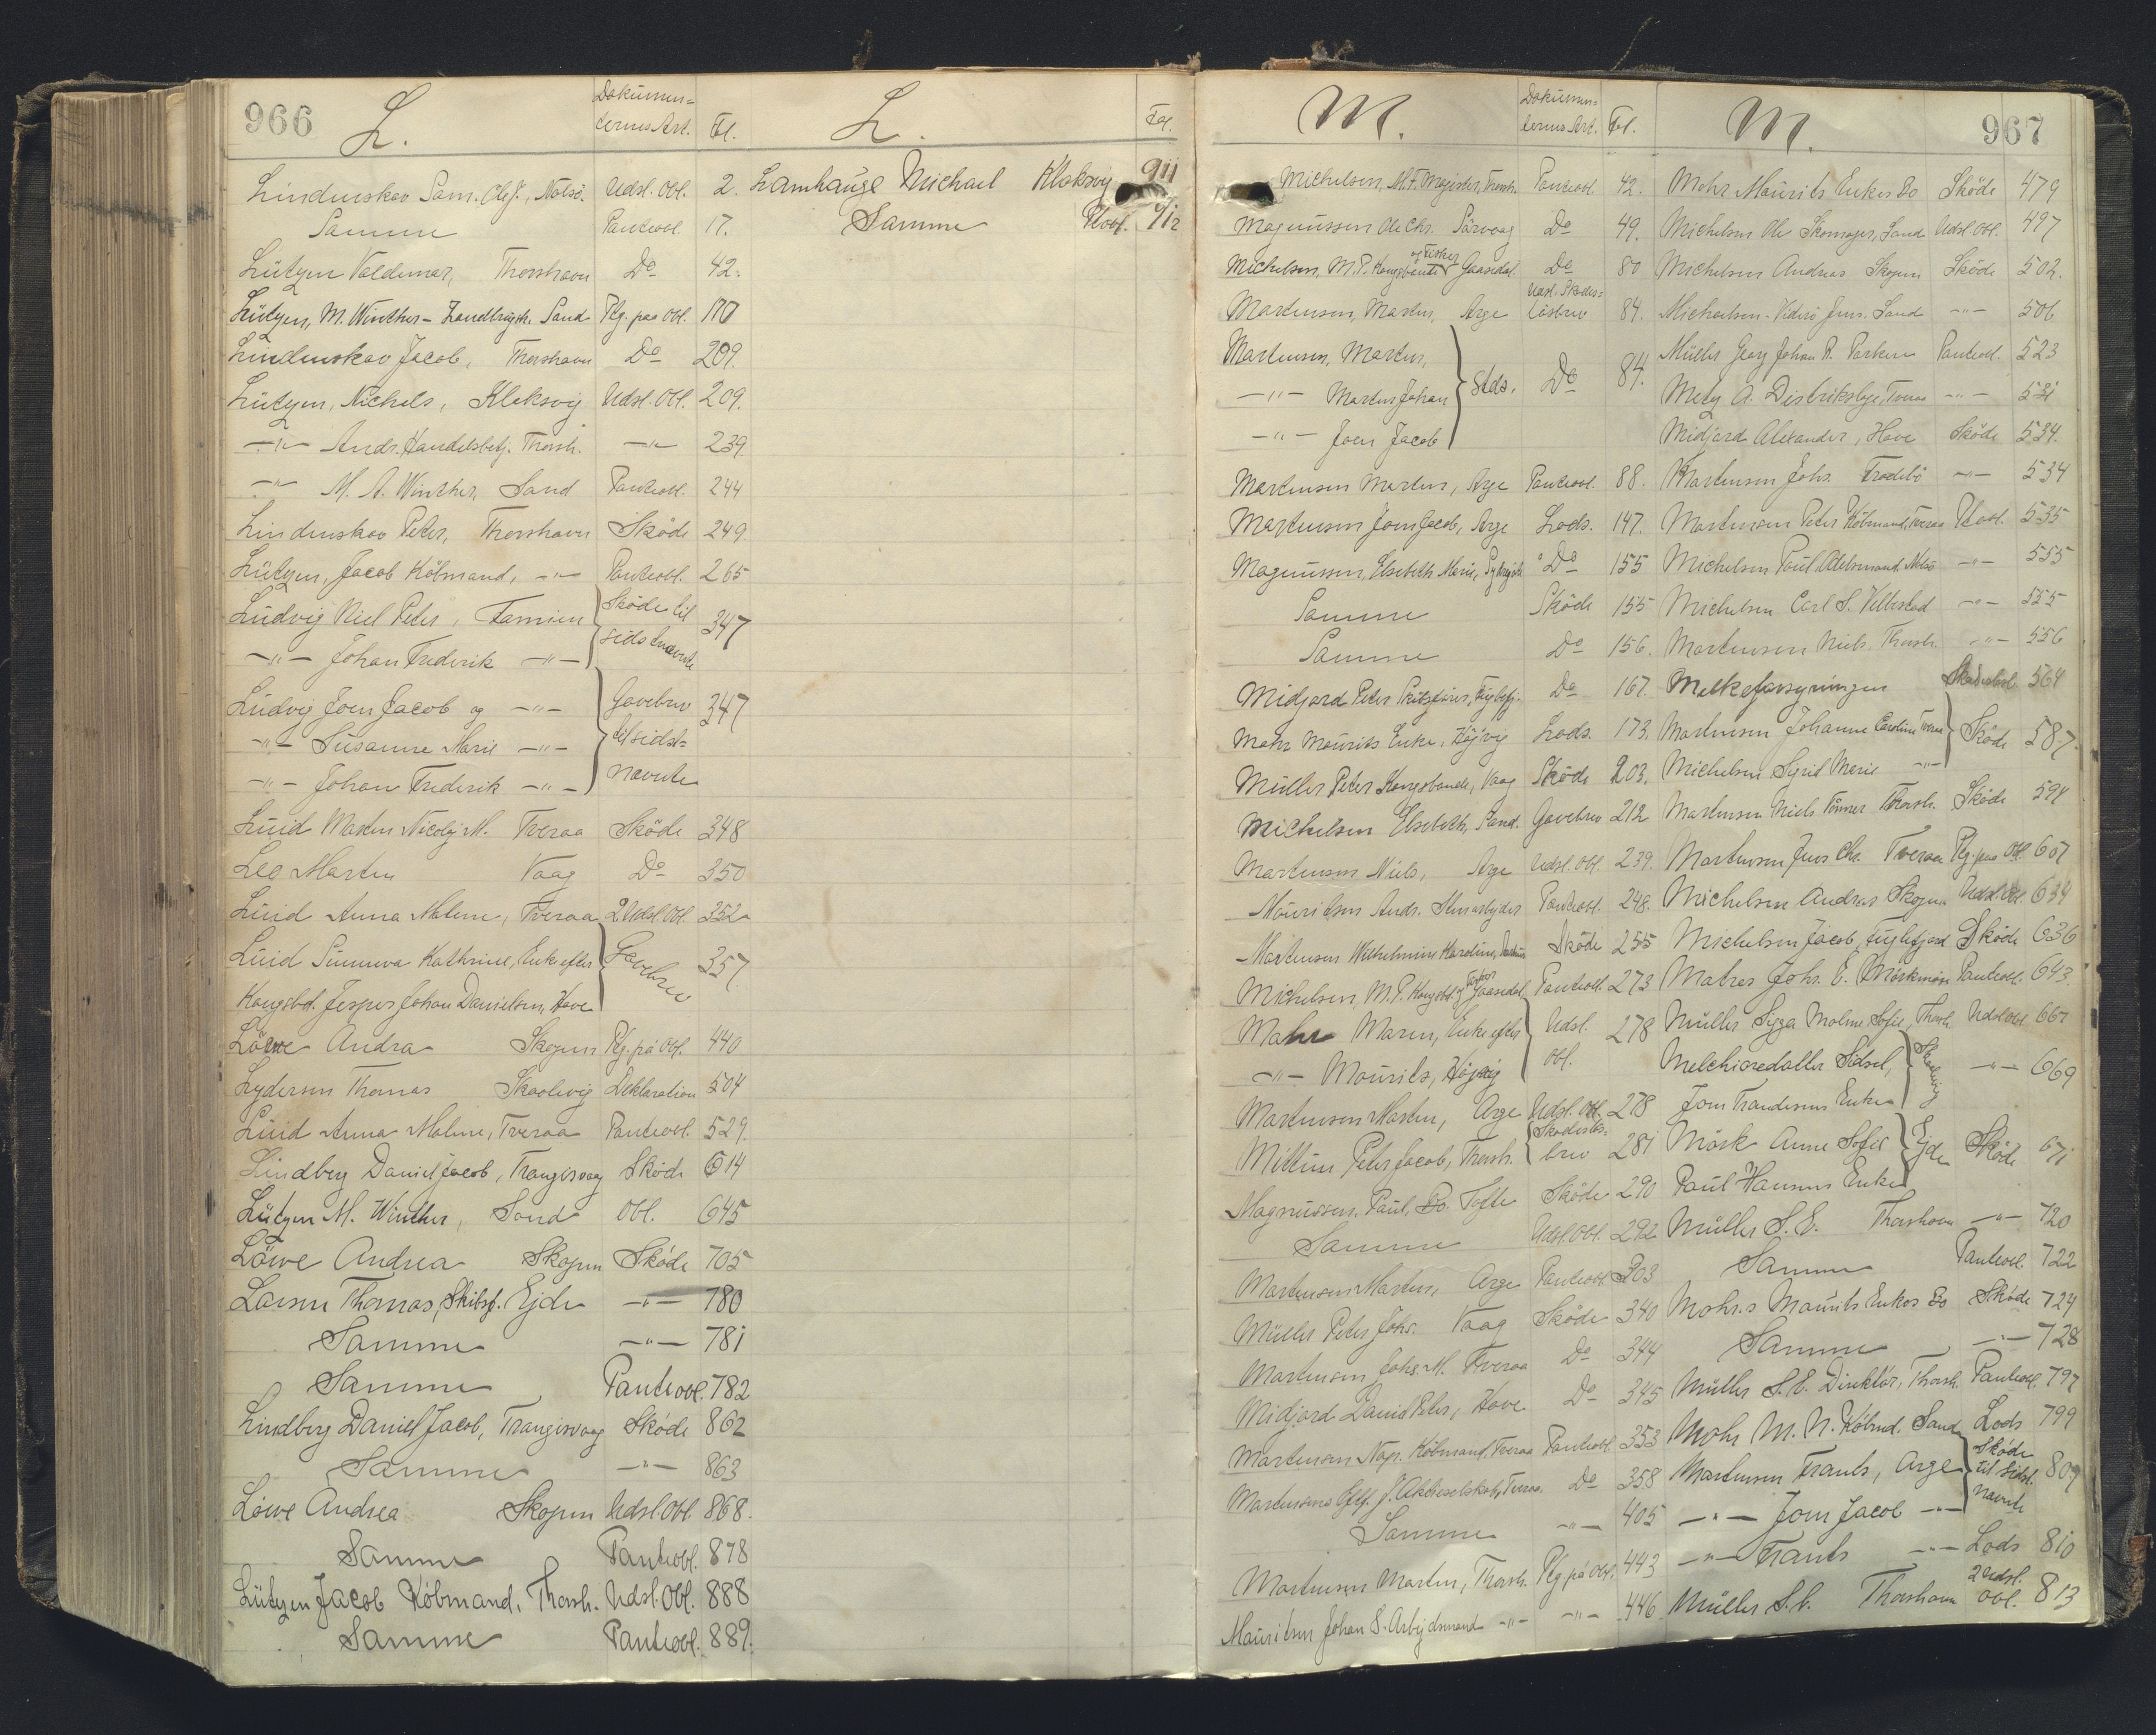 966
L.
Dokumen=
ternes Art.
Fol.
L.
Fol.
Lindenskov Sam. Olef., Nolsö. Udsl. Obl. 2.
Samme Panteobl. 17.
Lützen Valdemar, Thorshavn Do 42.
Lützen, M. Winther- Landbrugsk. Sand Ptg. paa Obl. 110
Lindenskov Jacob, Thorshavn Do 209.
Lützen, Nickels, Klaksvig Udsl. Obl. 209.
-"- Andr. Handelsbetj. Thorsh. -"- 239
-"- M. A. Winther, Sand Panteobl. 244
Lindenskov Peter, Thorshavn Sköde 249
Lützen, Jacob Köbmand, -"- Panteobl. 265
Ludvig Niel Peter, Famien Sköde til 347
-"- Johan Frederik -"- sidstnævnte
Ludvig Joen Jacob og -"- Gavebrev 347
-"- Susanne Marie -"- til sidst=
-"- Johan Frederik -"- nævnte
Luid Morten Nicolaj M. Tveraa Sköde 348
Leo Martin Vaag Do 350
Luid Anna Malene, Tveraa 2 Udsl. Obl. 352
Luid Sunneva Kathrine, Enke efter Gavebrev 357
Kongsbd. Jesper Johan Danielsen, Hove
Löwe Andra Skopun Ptg. på Obl. 440
Lydersen Thomas Skaalevig Deklaration 504
Luid Anna Malene, Tveraa Panteobl. 529.
Lindberg Daniel Jacob, Trangisvaag Sköde 614
Lützen M. Winther, Sand Obl. 645
Löwe Andrea Skopun Sköde 705
Larsen Thomas, Skibsf. Ejde -"- 780
Samme -"- 781
Samme Panteobl. 782
Lindberg Daniel Jacob, Trangisvaag Sköde 862
Samme -"- 863
Löwe Andrea Skopun Udsl. Obl. 868.
Samme Panteobl. 878
Lützen Jacob Köbmand, Thorsh. Udsl. Obl. 888
Samme Panteobl. 889.
Lamhauge Michael Klaksvig 911
Samme Ptobl. 912
M.
Dokumen=
ternes Art.
Fol.
M.
967
Michelsen, M. F. Magister, Thorsh. Panteobl. 42.
Magnussen Ole Chr. Sörvaag Do 49.
Michelsen, M. P. Kongsbonde og Fisker Gaasedal. Do 80
Martensen, Morten, Arge Udsl. Skades= lösbrev 84.
Martensen, Morten,
-"- Morten Johan Stds. Do 84.
-"- Joen Jacob
Martensen Morten, Arge Panteobl. 88.
Martensen Joen Jacob, Arge Lods. 147.
Magnussen, Elsebeth Marie, Do 155
Samme Sköde 155
Samme Do 156.
Midjord Peter Skibsförer, Fuglefj. Do 167.
Mohr Mourits Enke, Höjvig Lods. 173.
Müller Peter Kongsbonde, Vaag Sköde 203.
Michelsen Elsebeth, Sand. Gavebrev 212
Martensen Niels, Arge Udsl. Obl. 239.
Mouritsen Andr. Panteobl. 248.
Martensen Wilhelmine Karoline, Sköde 255
Michelsen, M. P. Kongsbd. Gaasedal Panteobl. 273
Mohr Maren, Enke efter Udsl. 278
-"- Mourits, Höjvig Obl.
Martensen Morten, Arge Udsl. Obl. 278
Mittun Peter Jacob, Thorsh. Skadeslös= brev 281
Magnussen, Paul, Bo. Tofte Sköde 290
Samme Udsl. Obl. 292
Martensen Morten, Arge Panteobl. 303
Müller Peter Johs. Vaag Sköde 340
Martensen, Johs. M. Tveraa Do 344
Midjord Daniel Peter, Hove Do 345
Martensen Nap. Köbmand, Tveraa Panteobl. 353
Martensens Eftf. J. Aktieselskab, Tveraa. Do 358
Samme -"- 405
Martensen Morten, Thorsh. Ptg på Obl. 443
Mouritsen Johan S. Arbejdsmand -"- -"- 446
Mohr Mourits Enkes Bo Sköde 479
Michelsen Ole Skomager, Sand Udsl. Obl. 497
Michelsen Andreas Skopun Sköde 502.
Michelsen- Viderö Jens. Sand -"- 506
Müller Georg Johan P. Panteobl. 523
Metz A. Distriktslæge, Tveraa -"- 531
Midjord Alexander, Hove Sköde 534.
Martensen Johs. Frodebö -"- 534
Martensen Peter Köbmand, Tveraa Ptobl. 535
Michelsen Paul Odelsmand Nolsö -"- 555
Michelsen Carl S. Velbestad -"- 555
Martensen Niels. Thorsh. -"- 556
Melkeforsyningen Skadeslösb. 564
Martensen Johanne Caroline Tveraa Sköde 587.
Michelsen Sigrid Marie -"-
Martensen Niels Tömrer Thorsh. Sköde 594
Martensen Jens Chr. Tveraa Ptg. paa Obl. 607
Michelsen Andreas Skopun Udsl. Obl. 634
Michelsen Jacob, Fuglefjord Sköde 636
Matras Johs. E. Panteobl. 643.
Müller Sigga Malene Sofie, Thorsh. Udsl. Obl. 667
Melchiorsdatter Sidsel, Skaalevig -"- 669
Joen Enke
Mörk Anne Sofie Ejde Sköde 671
Paul Hansens Enke
Müller S. E. Thorshavn -"- 720
Samme Panteobl. 722
Mohr.s Mourits Enkes Bo Sköde 724
Samme -"- 728
Müller S. E. Direktör, Thorsh. Panteobl. 797
Mohr M. N. Köbmd. Sand Lods 799
Martensen Frants, Arge Sköde til sidst. nævnte 809
-"- Joen Jacob -"-
-"- Frants -"- Lods 810
Müller S. E. Thorshavn 2 Udsl. Obl. 813